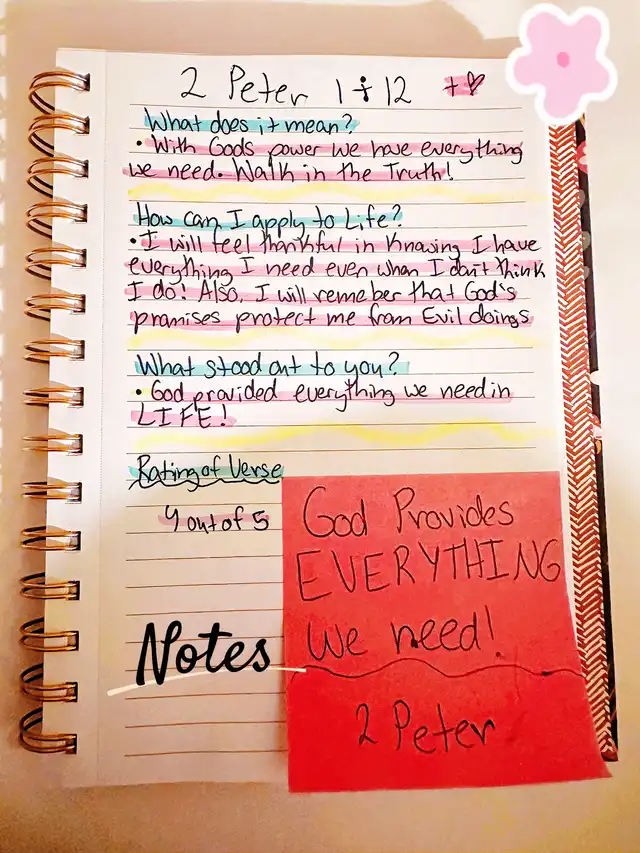 2 Peter 1÷12 +♡
What does it mean?
• With Gods power we have everything
we need. Walk in the Truth!
How can I apply to Life?
• I will feel thankful in knowing I have
everything I need even when I don't think
I do! Also, I will remeber that God's
promises protect me from Evil doings
What stood out to you?
• God provided everything we need in
LIFE!
Rating of Verse
4 out of 5
God Provides
EVERYTHING
we need!
2 Peter
Notes